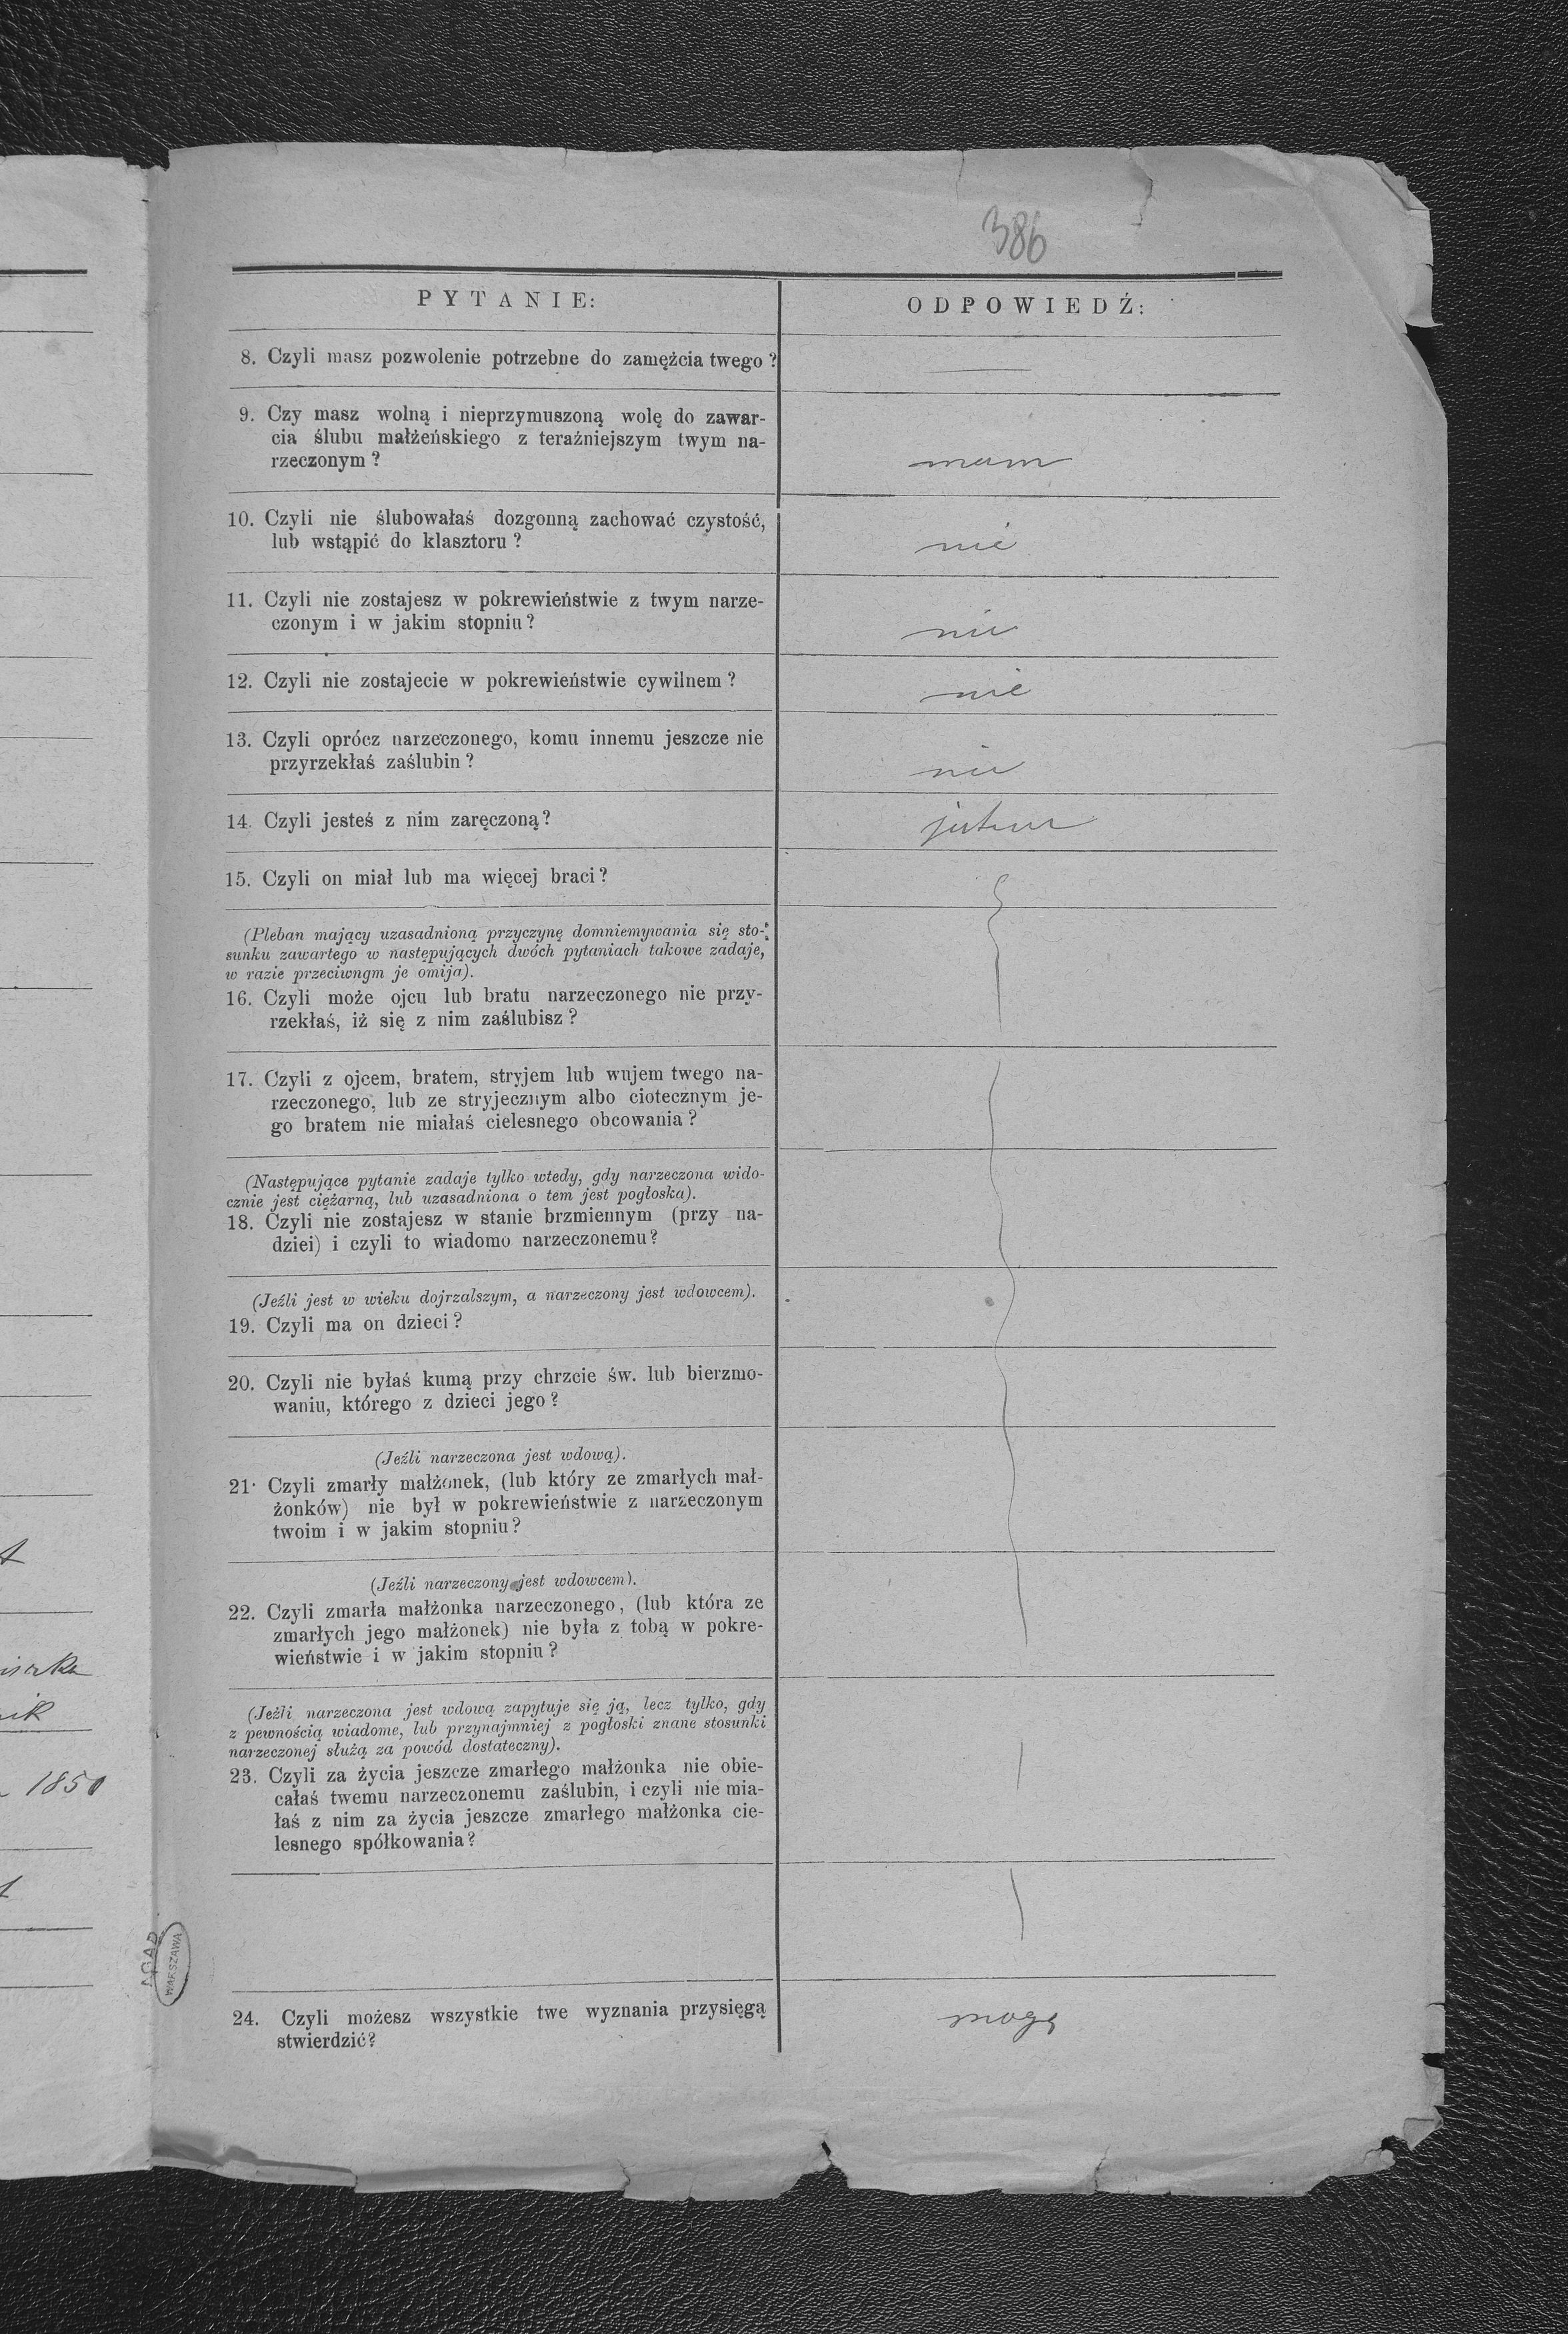 386
PYTANIE:
ODPOWIEDŹ:
8. Czyli masz pozwolenie potrzebne do zamężcia twego?
—
9. Czy masz wolną i nieprzymuszoną wolę do zawar-
cia ślubu małżeńskiego z teraźniejszym twym na-
rzeczonym?
mam
10. Czyli nie ślubowałaś dozgonną zachować czystość,
lub wstąpić do klasztoru?
nie
11. Czyli nie zostajesz w pokrewieństwie z twym narze-
czonym i w jakim stopniu?
nie
12. Czyli nie zostajecie w pokrewieństwie cywilnem?
nie
13. Czyli oprócz narzeczonego, komu innemu jeszcze nie
przyrzekłaś zaślubin?
nie
14. Czyli jesteś z nim zaręczoną?
jestem
15. Czyli on miał lub ma więcej braci?
(Pleban mający uzasadnioną przyczynę domniemywania się sto-
sunku zawartego w następujących dwóch pytaniach takowe zadaje,
w razie przeciwngm je omija).
16. Czyli może ojcu lub bratu narzeczonego nie przy-
rzekłaś, iż się z nim zaślubisz?
17. Czyli z ojcem, bratem, stryjem lub wujem twego na-
rzeczonego, lub ze stryjecznym albo ciotecznym je-
go bratem nie miałaś cielesnego obcowania?
(Następujące pytanie zadaje tylko wtedy, gdy narzeczona wido-
cznie jest ciężarną, lub uzasadniona o tem jest pogłoska).
18. Czyli nie zostajesz w stanie brzmiennym (przy na-
dziei) i czyli to wiadomo narzeczonemu?
(Jeźli jest w wieku dojrzalszym, a narzeczony jest wdowcem).
19. Czyli ma on dzieci?
20. Czyli nie byłaś kumą przy chrzcie św. lub bierzmo-
waniu, którego z dzieci jego?
(Jeźli narzeczona jest wdową).
21. Czyli zmarły małżonek, (lub który ze zmarłych mał-
żonków) nie był w pokrewieństwie z narzeczonym
twoim i w jakim stopniu?
(Jeźli narzeczony jest wdowcem).
22. Czyli zmarła małżonka narzeczonego, (lub która ze
zmarłych jego małżonek) nie była z tobą w pokre-
wieństwie i w jakim stopniu?
(Jeźli narzeczona jest wdową zapytuje się ją, lecz tylko, gdy
z pewnością wiadome, lub przynajmniej z pogłoski znane stosunki
narzeczonej służą za powód dostateczny).
23. Czyli za życia jeszcze zmarłego małżonka nie obie-
całaś twemu narzeczonemu zaślubin, i czyli nie mia-
łaś z nim za życia jeszcze zmarłego małżonka cie-
lesnego spółkowania?
24. Czyli możesz wszystkie twe wyznania przysięgą
stwierdzić?
mogę
1850
AGAD
WARSZAWA